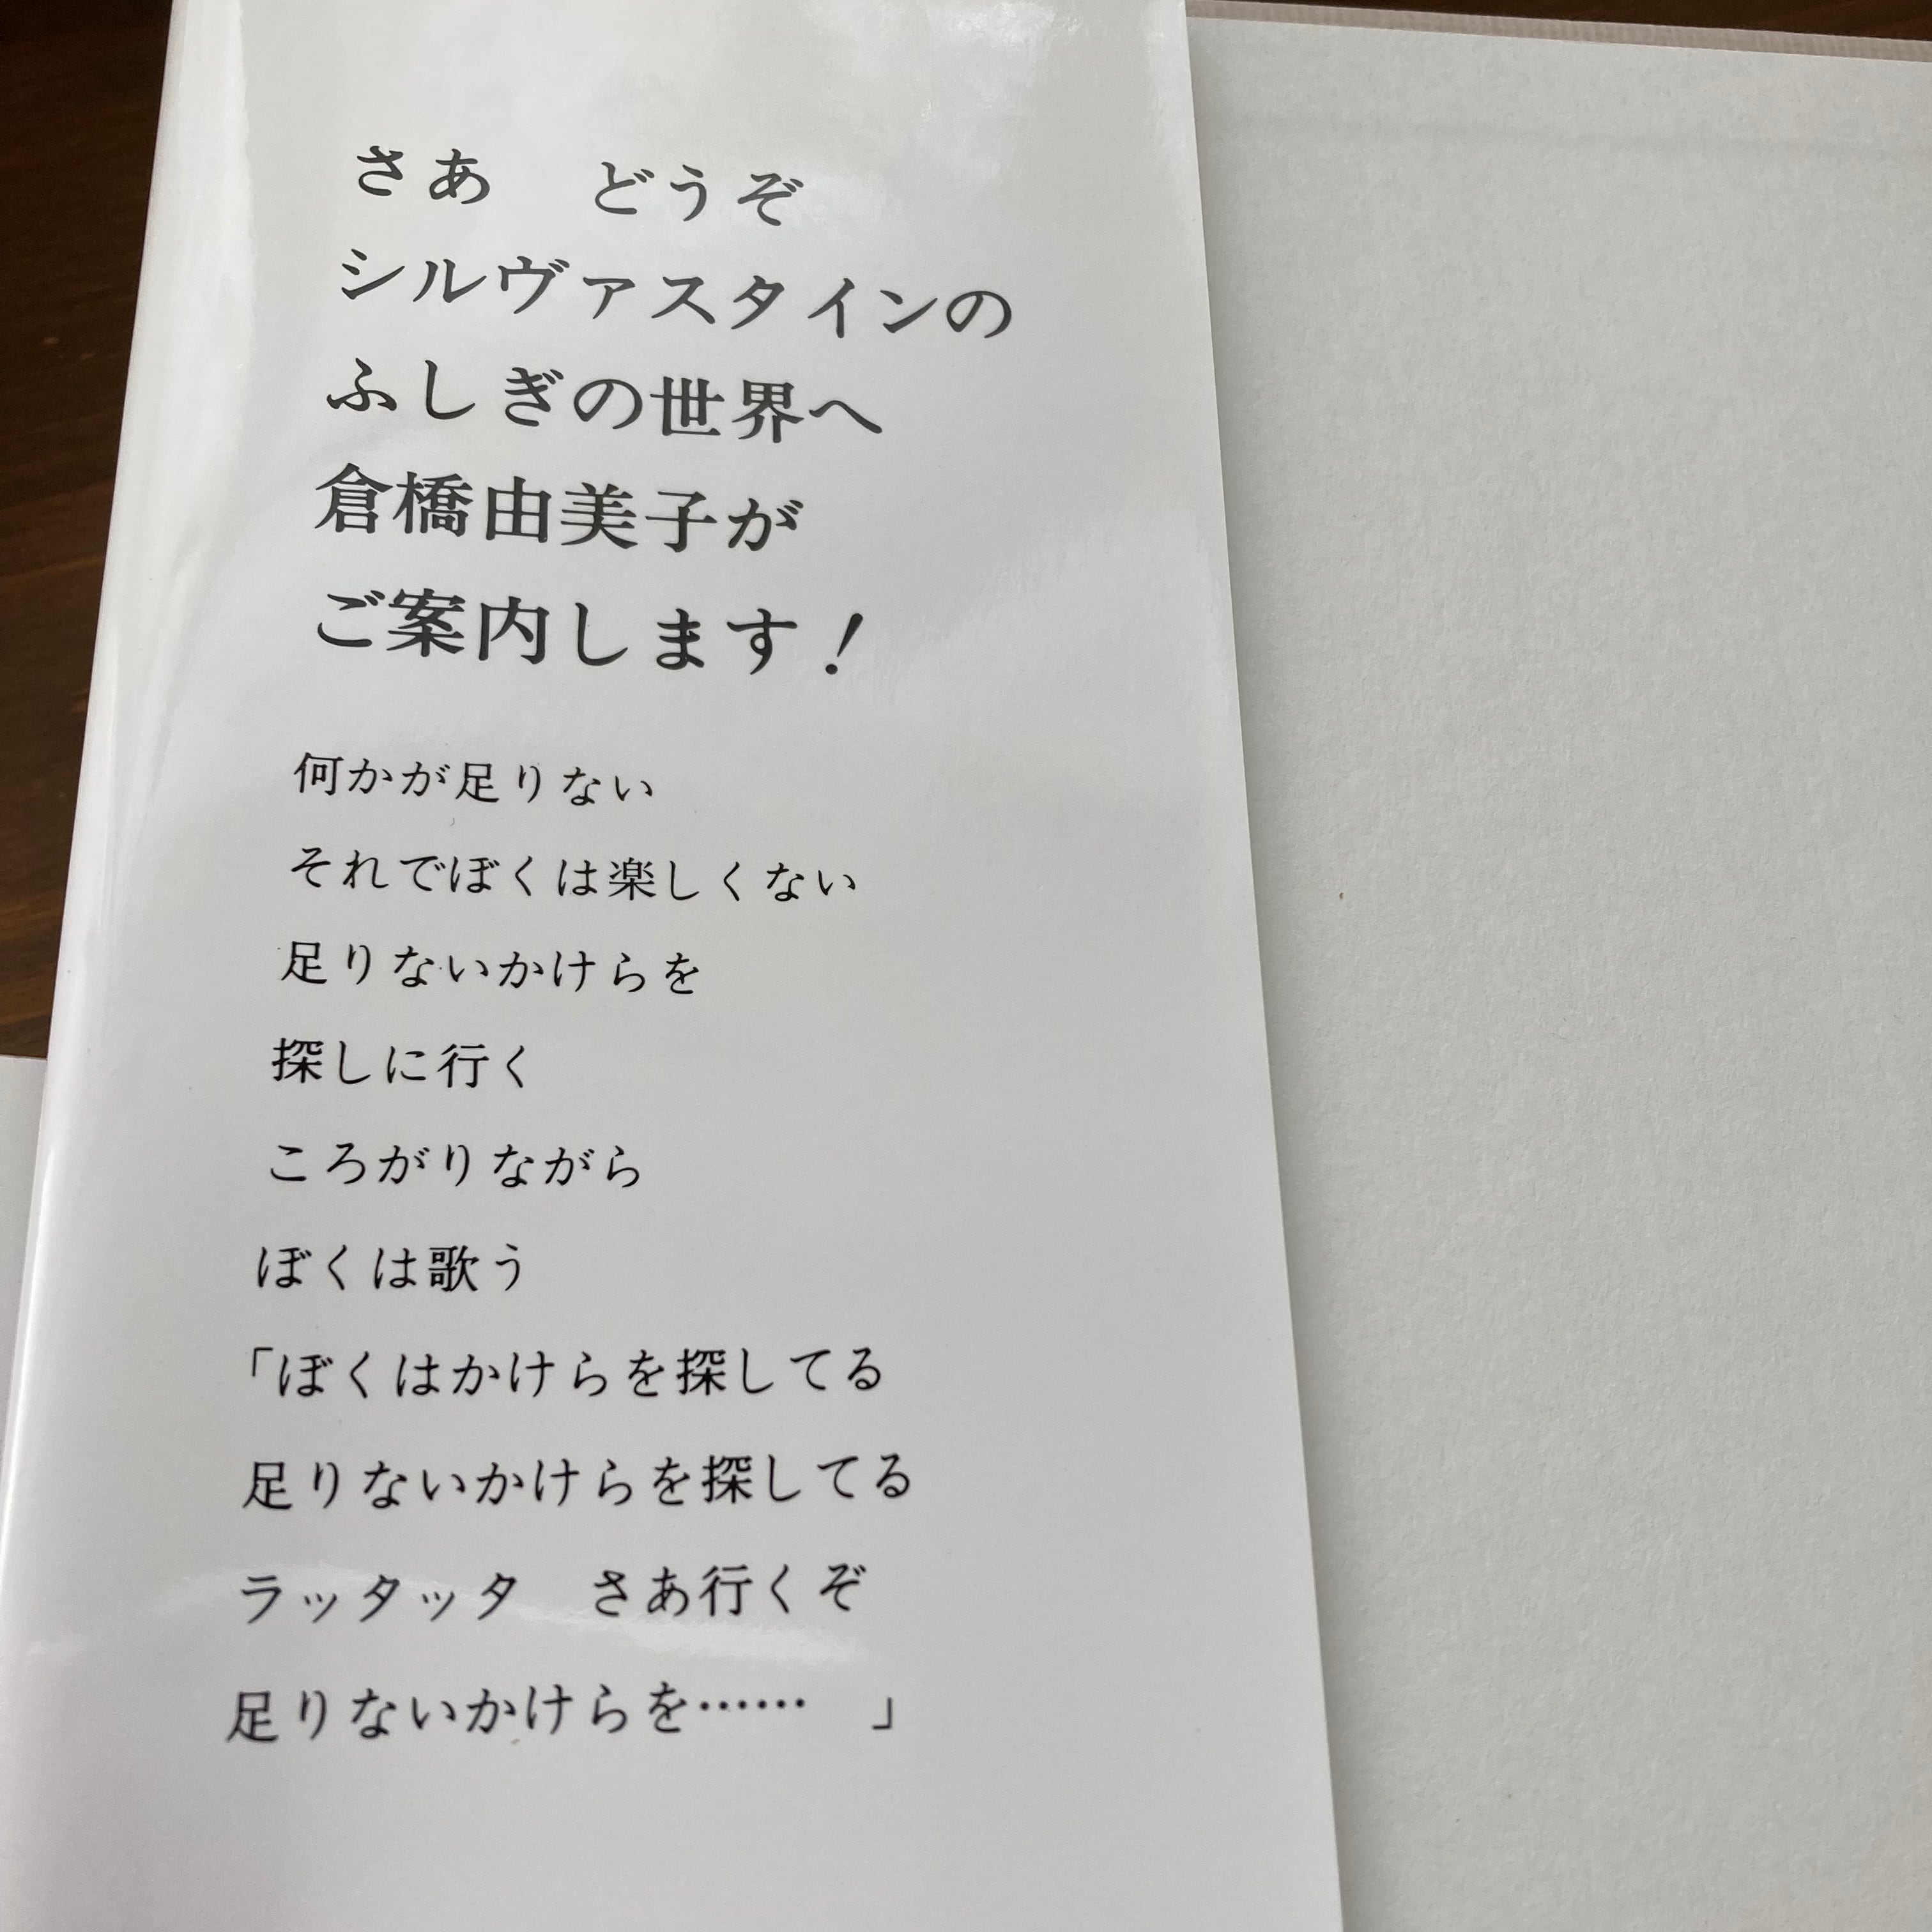 さあ　どうぞ
シルヴァスタインの
ふしぎの世界へ
倉橋由美子が
ご案内します！
何かが足りない
それでぼくは楽しくない
足りないかけらを
探しに行く
ころがりながら
ぼくは歌う
「ぼくはかけらを探してる
足りないかけらを探してる
ラッタッタ　さあ行くぞ
足りないかけらを……　」